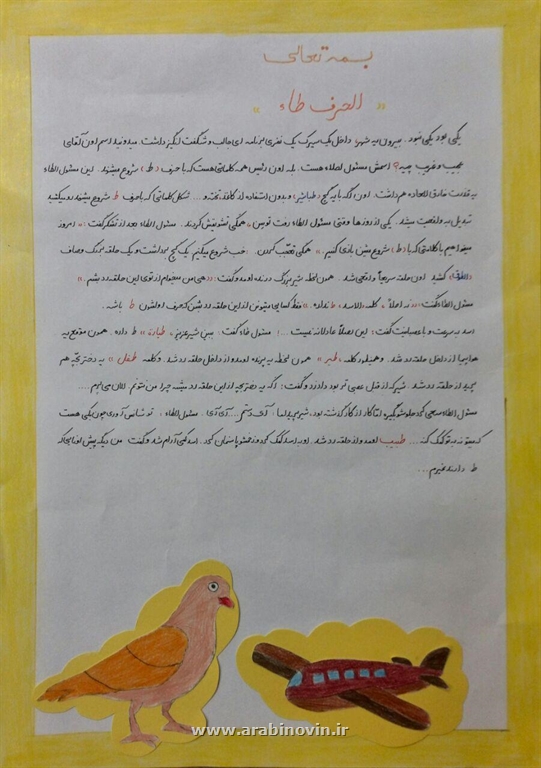 بسمه تعالی
« الحرف طاء »
یکی بود یکی نبود. بیرون یه شهر، داخل یک سیرک یک نفری برنامه ای جالب و شگفت انگیز داشت. میدونید اسم اون آقای
عجیب و غریب چیه؟ اسمش مسئول الطاء هست. بله اون رئیس همه کلماتی هست که با حرف (ط) شروع میشوند. این مسئول الطاء
یه قدرت خارق العاده هم داشت. اون اگه با یه گچ (طباشیر) و بدون استفاده از کاغذ، تخته و ... شکل کلماتی که با حرف ط شروع میشوند رو بکشید
تبدیل به واقعیت میشد. یکی از روزها وقتی مسئول الطاء رفت توسن، همگی تشویقش کردند. مسئول الطاء بعد از تشکر گفت: « امروز
میخواهیم با کلماتی که با (ط) شروع میشن بازی کنیم.» همگی تعجب کردن. خب شروع میکنیم یک گچ برداشت و یک حلقه بزرگ وصاف
کشید اون حلقه سریعاً واقعی شد. همون لحظه شیر بزرگ درنده اومد و گفت: «هی من میخوام از توی این حلقه رد بشم.»
مسئول الطاء گفت: « نه اصلاً، کلمه «الاسد» ط نداره. فقط کسایی میتونن از این حلقه رد شن که حرف اولشون ط باشه.
اسد به سرعت و با عصبانیت گفت: این اصلاً عادلانه نیست ...! مسئول طاء گفت. ببین شیر عزیزم، « طیارة » ط داره. همون موقع یه
هواپیما از داخل حلقه رد شد. و همینطور کلمه « طیر » همون لحظه یه پرنده اومد و از داخل حلقه رد شد. و کلمه « طفل » یه دختر بچه هم
پرید از حلقه رد شد. شیر که از قبل عصبی تر بود داد زد و گفت: اگه یه دختر بچه از این حلقه رد میشه چرا من نتونم. الان می پرم....
مسئول الطاء سعی کرد جلوشو بگیره اما کار از کار گذشته بود، شیر پرید اما: آی سرم. آی آی. مسئول الطاء: تو شانس آوردی چون یکی هست
که میتونه به تو کمک کنه ... طبیب اومد و از حلقه رد شد. او به اسد کمک کرد و زخمشو پانسمان کرد. اسد کمی آرام شد و گفت من دیگه پیش اونایی که
ط دارند نمیرم ...
www.arabinovin.ir